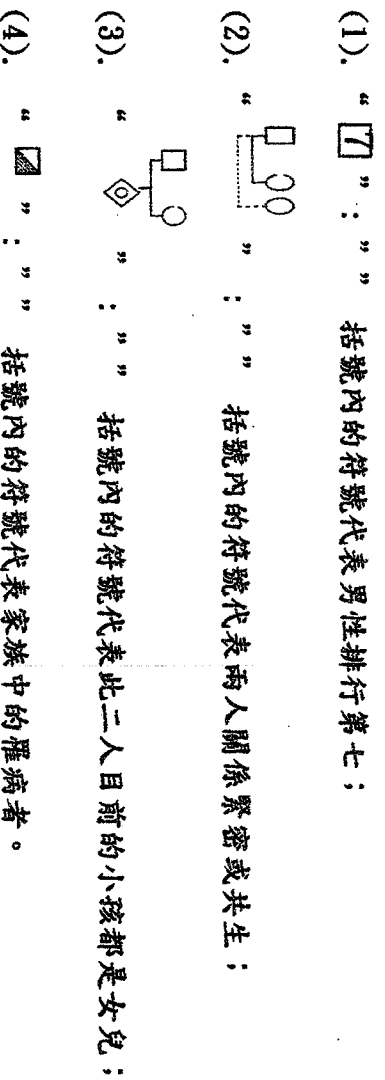 (1). “ 7 ” : ” ” 括號內的符號代表男性排行第七；
(2). “ ” : ” ” 括號內的符號代表兩人關係緊密或共生；
(3). “ ” : ” ” 括號內的符號代表此二人目前的小孩都是女兒；
(4). “ ” : ” ” 括號內的符號代表家族中的罹病者。